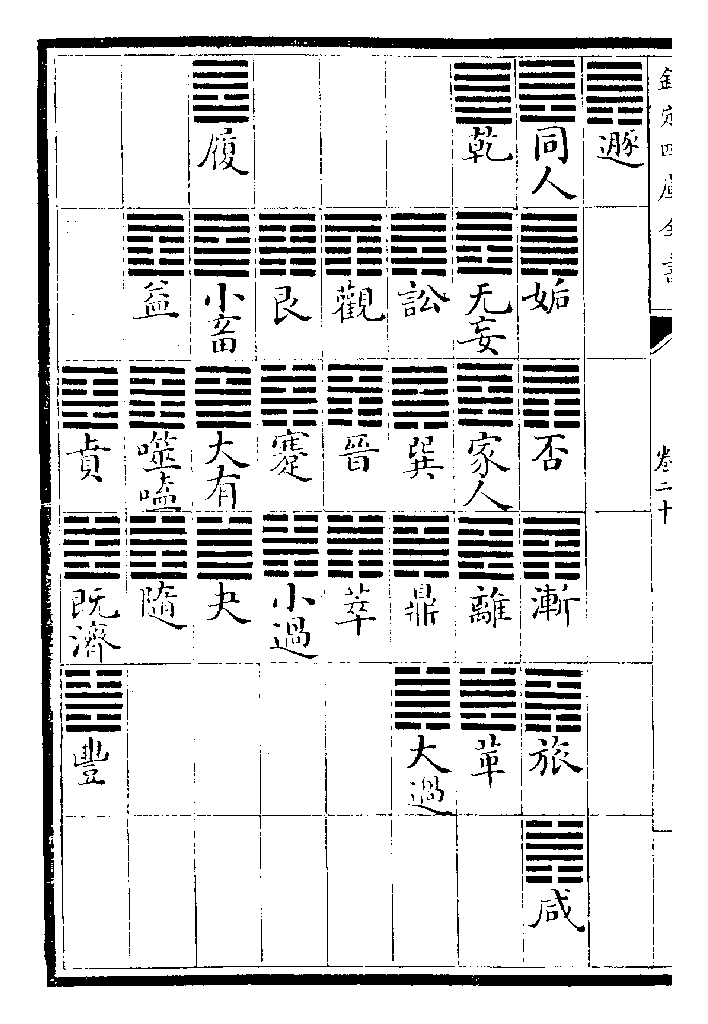 欽定四庫全書
卷二十
遯
同人
姤
否
漸
旅
咸
乾
无妄
家人
離
革
訟
巽
鼎
大過
觀
晉
萃
艮
蹇
小過
履
小畜
大有
夬
益
噬嗑
隨
賁
既濟
豐